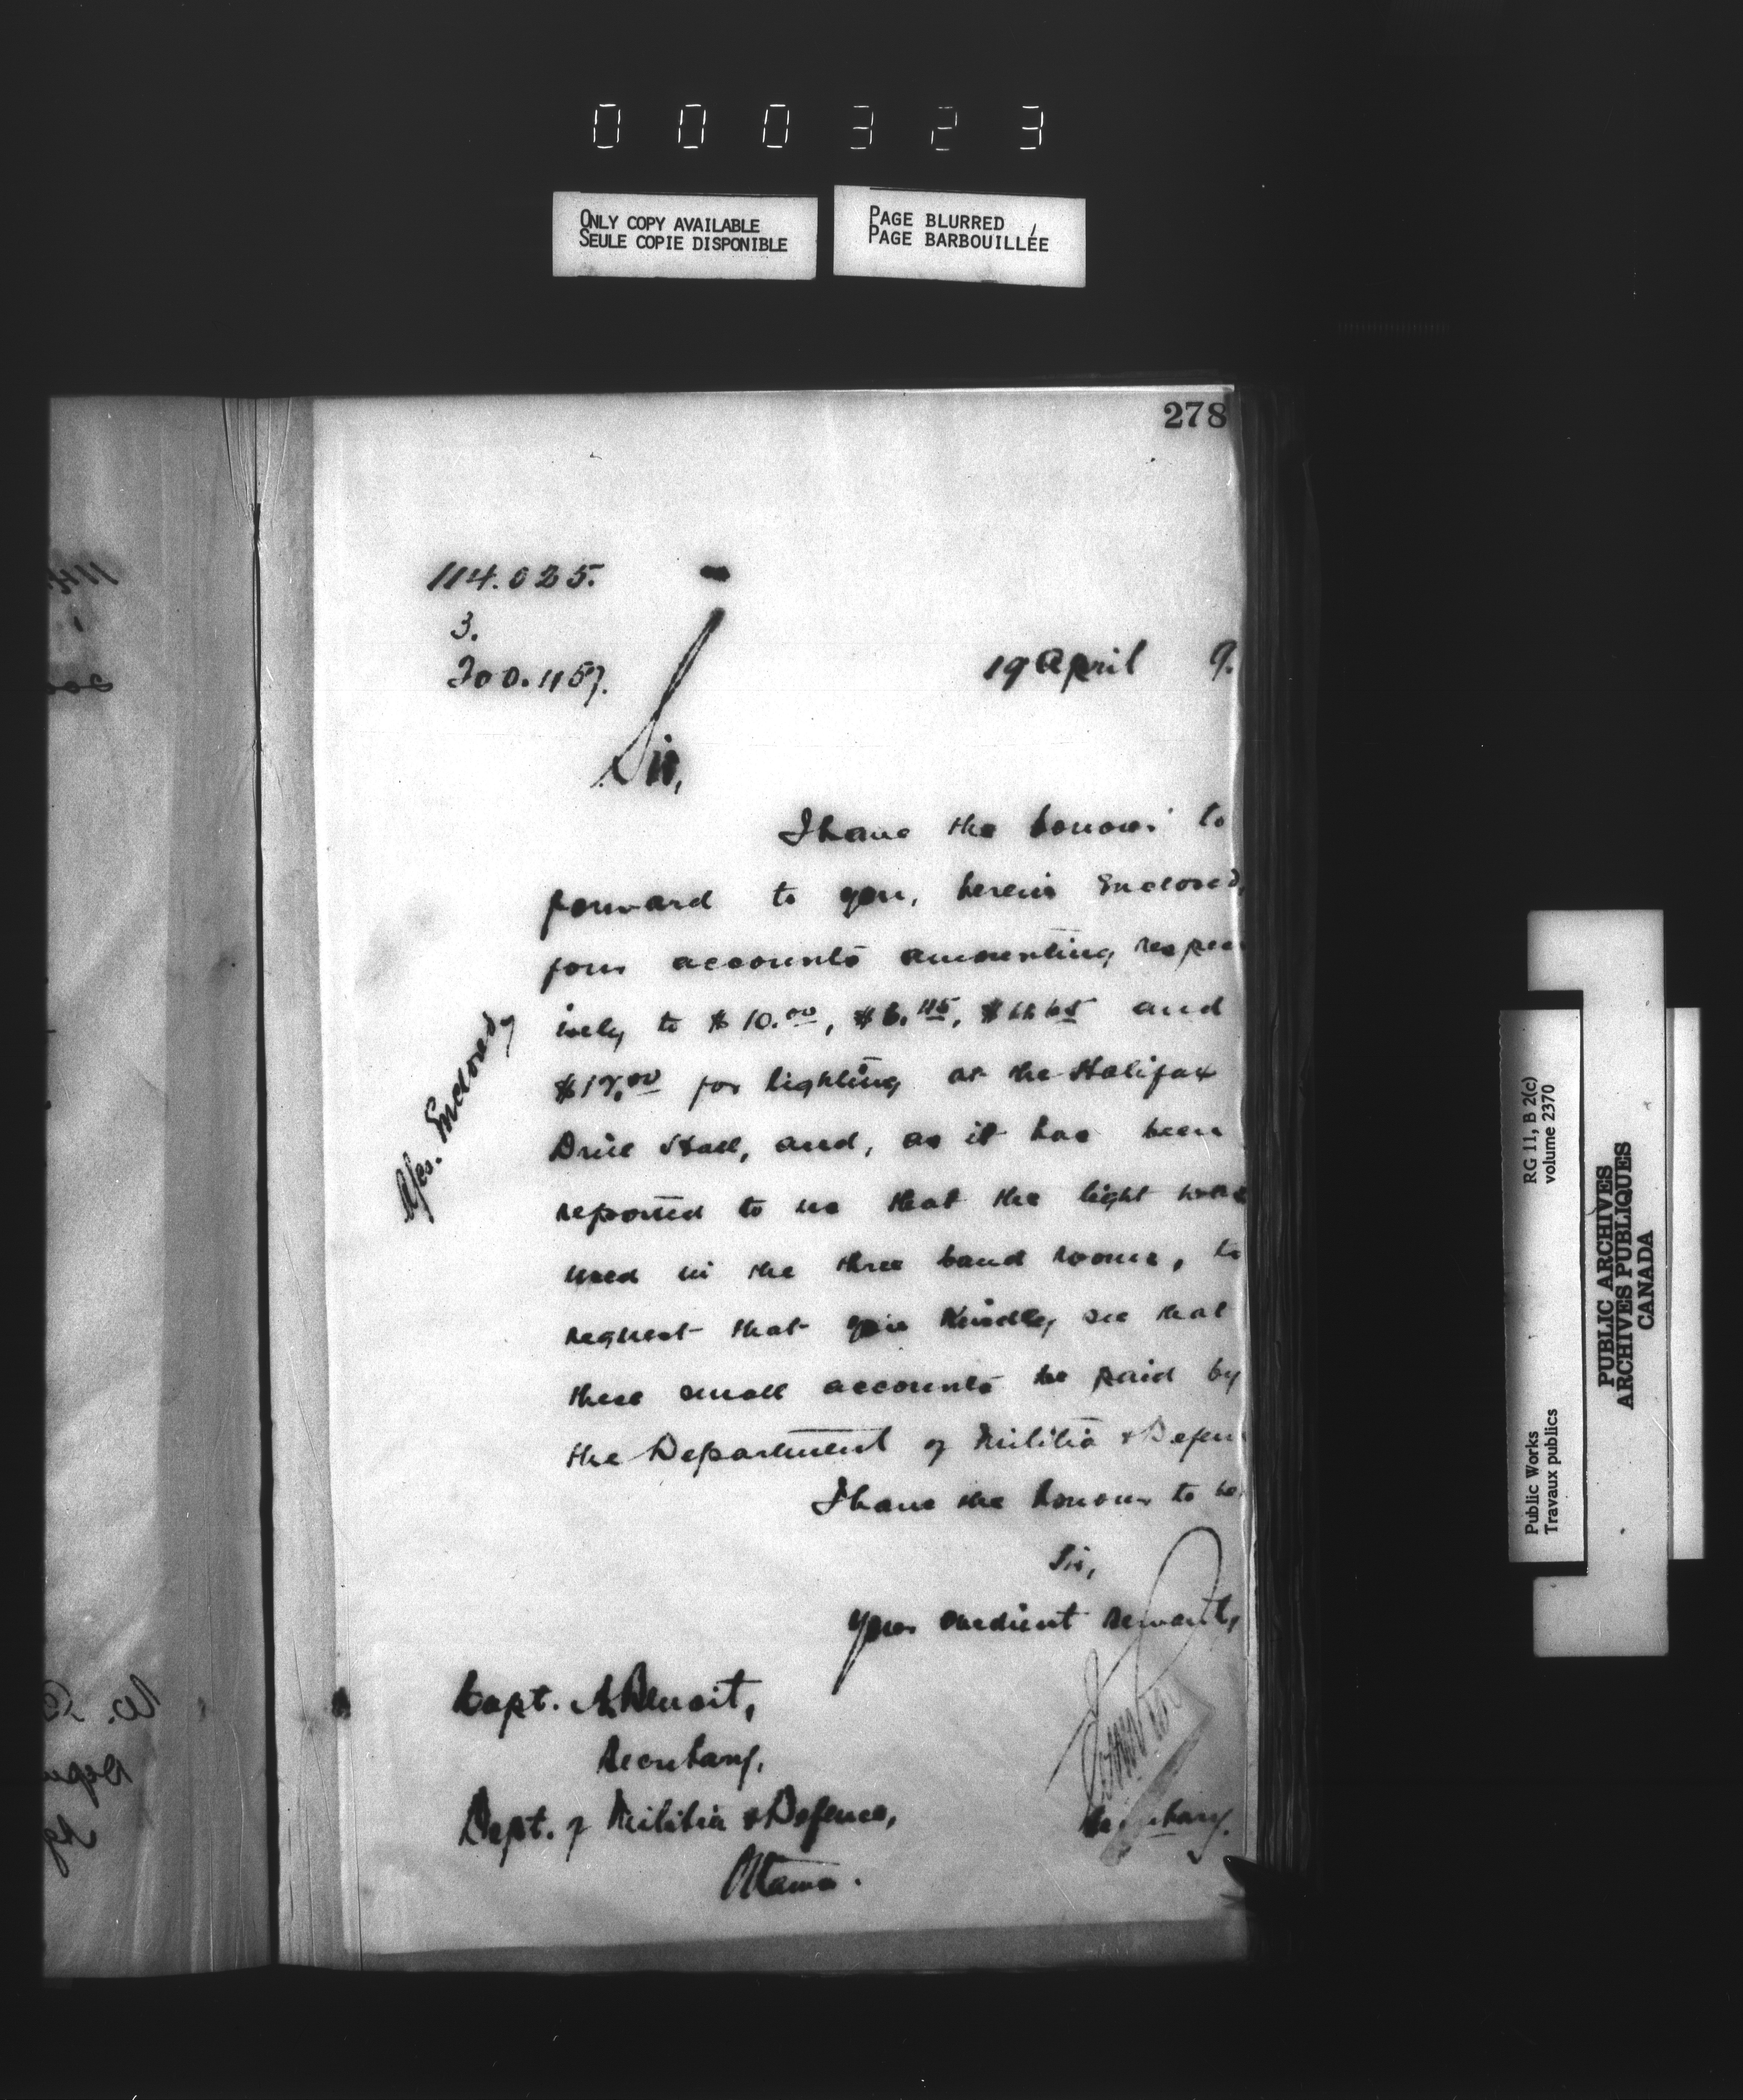 000323
ONLY COPY AVAILABLE
SEULE COPIE DISPONIBLE
PAGE BLURRED
PAGE BARBOUILLÉE
278
114.025.
3.
200.1157.
19 April 9.
Sir,
I have the honour to
forward to you, herein Enclosed,
four accounts amounting respec
ively to $10.00, $6.45, and
$17.00 for lighting at the Halifax
Drill Hall, and, as it has been
reported to us that the light was
used in the three band rooms, to
request that you kindly see that
these small accounts be paid by
the Department of Militia & Defen
I have the honour to be,
Sir,
Your obedient servant,
Capt. A. Benoit,
Secretary,
Dept. of Militia & Defence,
Ottawa.
Secretary.
Enclosed
Public Works
Travaux publics
RG 11, B 2(c)
volume 2370
PUBLIC ARCHIVES
ARCHIVES PUBLIQUES
CANADA